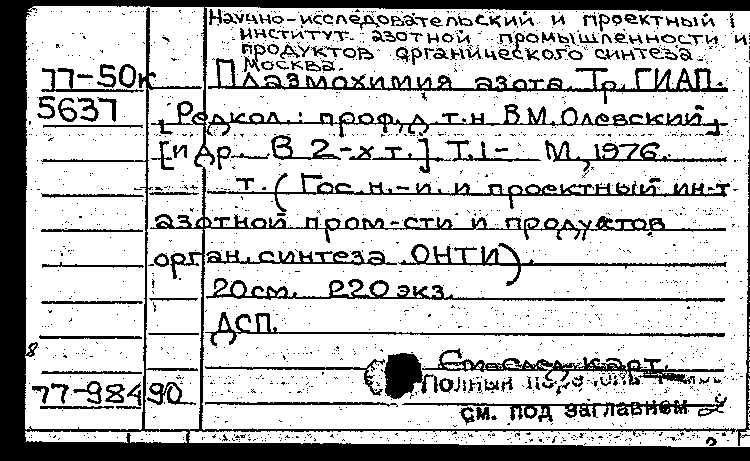 Научно-исследовательский и проектный
институт азотной промышленности и
продуктов органического синтеза.
Москва.
77-50к Плазмохимия азота. Тр. ГИАП.
5637 [Редкол.: проф., д.т.н. В.М. Олевский]
[и др. В 2-х т.]. Т.1- М., 1976.
т. (Гос. н.-и. и проектный ин-т
азотной пром-сти и продуктов
орган. синтеза. ОНТИ).
20см. 220 экз.
ДСП.
8
См. след. карт.
77-98490 Полный
см. под заглавием